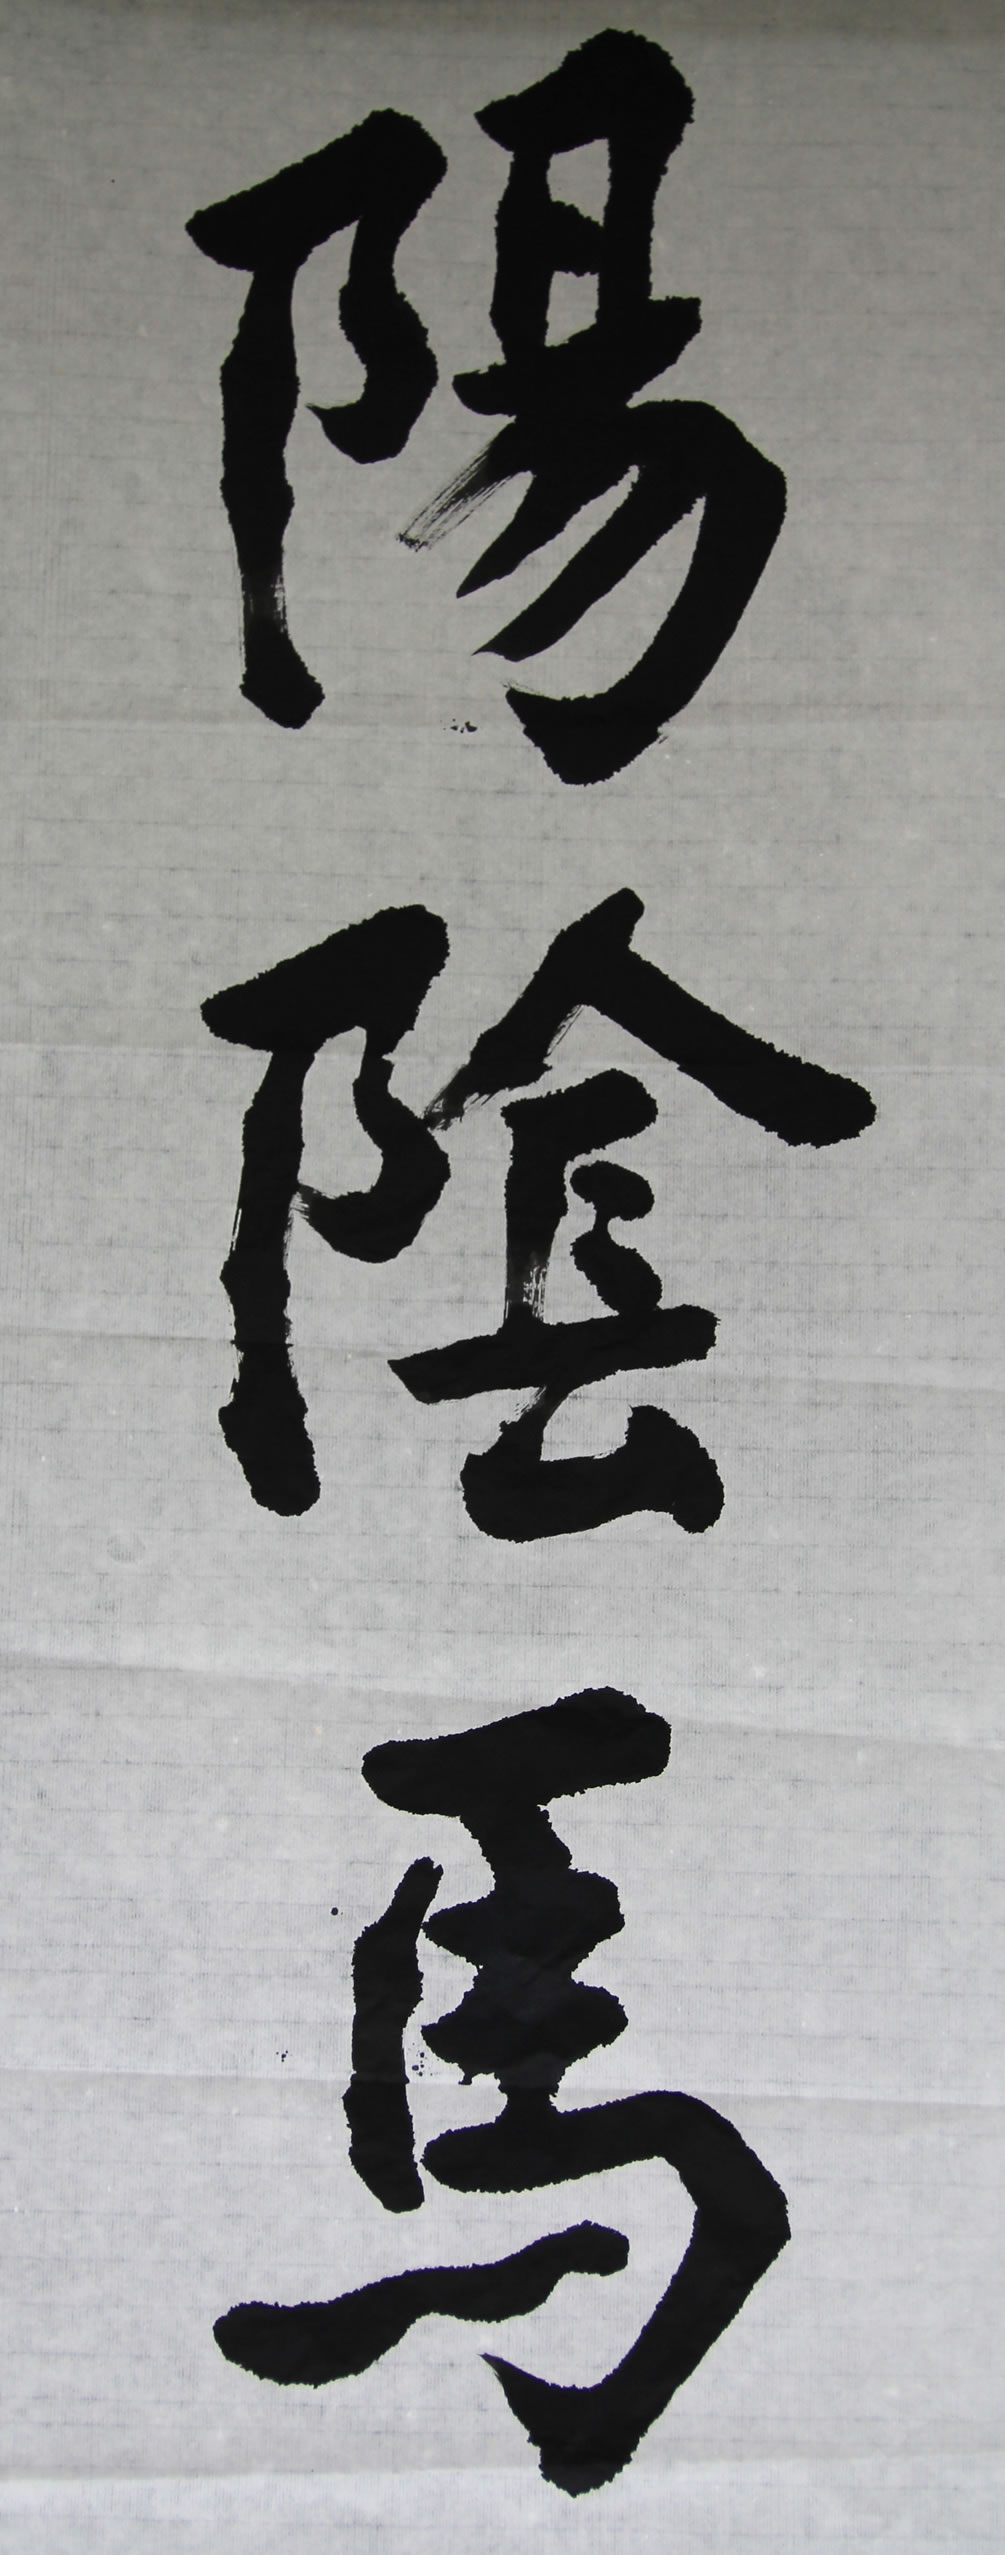 陽陰馬